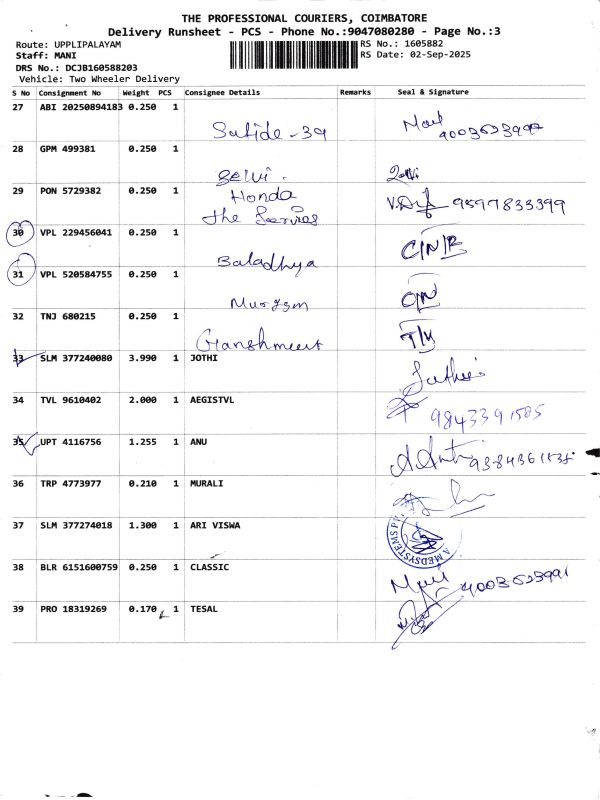 THE PROFESSIONAL COURIERS, COIMBATORE
Delivery Runsheet - PCS - Phone No.:9047080280 - Page No.:3
Route: UPPLIPALAYAM RS No.: 1605882
Staff: MANI RS Date: 02-Sep-2025
DRS No.: DCJB160588203
Vehicle: Two Wheeler Delivery
S No Consignment No Weight PCS Consignee Details Remarks Seal & Signature
27 ABI 20250894183 0.250 1
28 GPM 499381 0.250 1
Selvi
29 PON 5729382 0.250 1 Honda
9597833399
The Services
30 VPL 229456041 0.250 1
Baladhya
31 VPL 520584755 0.250 1
32 TNJ 680215 0.250 1
33 SLM 377240080 3.990 1 JOTHI
34 TVL 9610402 2.000 1 AEGISTVL
35 UPT 4116756 1.255 1 ANU
36 TRP 4773977 0.210 1 MURALI
37 SLM 377274018 1.300 1 ARI VISWA
38 BLR 6151600759 0.250 1 CLASSIC
39 PRO 18319269 0.170 1 TESAL